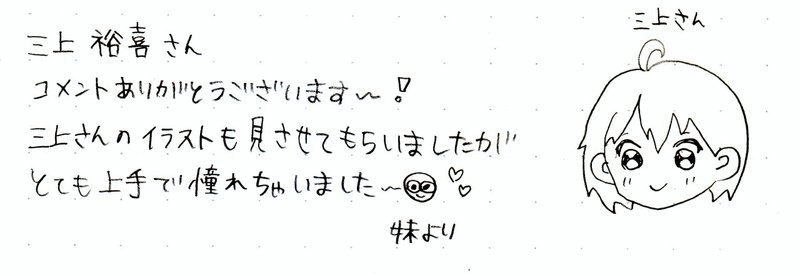 三上 裕喜さん
コメントありがとうございます~!
三上さんのイラストも見させてもらいましたが
とても上手で憧れちゃいました~
妹より
三上さん